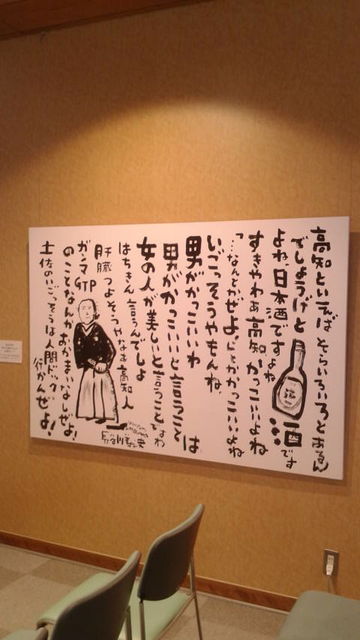 高知といえばそらいろいろとあるん
でしょうけど
よね、日本酒ですよね
酒です
すきやわぁ高知かっこいいよね
…なんとかぜよ、とかかっこいいよね
いごっそうやもんね、
男がかっこいいわ
男がかっこいいと言うことは
女の人が美しいと言うことですわ
はちきん言うんでしょ
肝臓つよそうやなぁ高知人
ガンマGTP
のことなんかおかまいなしぜよ!
土佐のいごっそうは人間ドック
行かんぜよ!